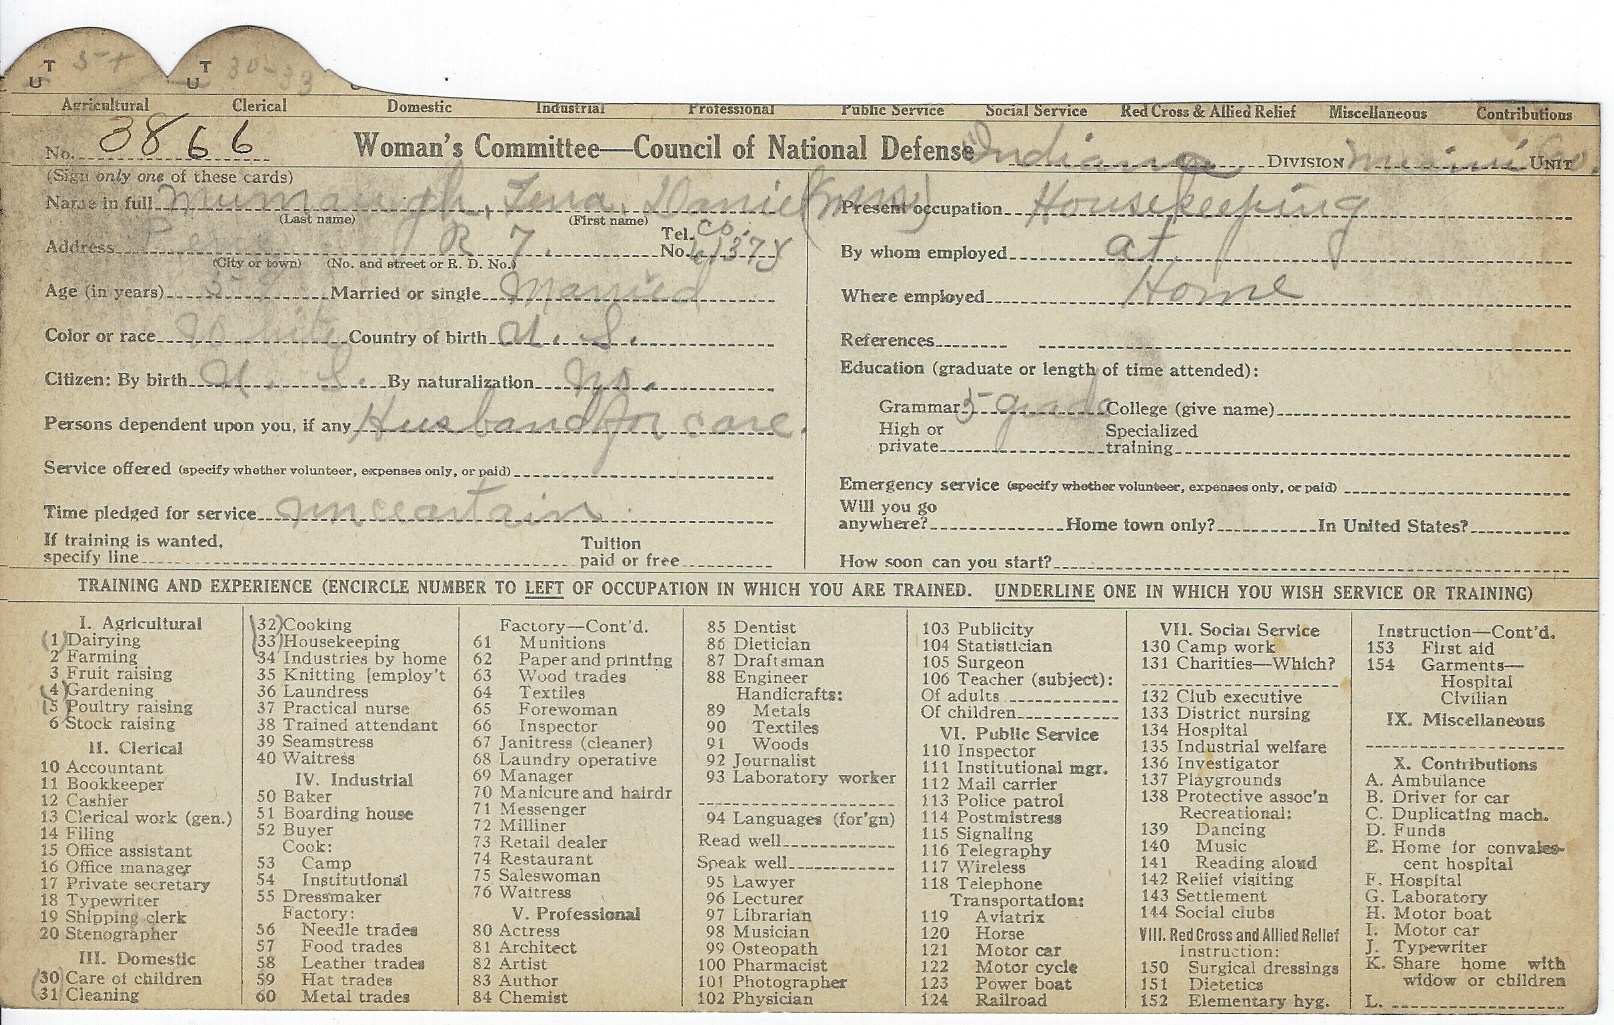 T U 5-+ T U 30-33
Agricultural Clerical Domestic Industrial Professional Public Service Social Service Red Cross & Allied Relief Miscellaneous Contributions
No. 3866 Woman's Committee—Council of National Defense Indiana DIVISION Miami Co. UNIT
(Sign only one of these cards)
Name in full Mumaugh, Lena, Daniel (Mrs)
(Last name) (First name)
Address R 7. Tel. No. Co.
(City or town) (No. and street or R. D. No.)
Age (in years) Married or single Married
Color or race White Country of birth U. S.
Citizen: By birth U. S. By naturalization No.
Persons dependent upon you, if any Husband for care.
Service offered (specify whether volunteer, expenses only, or paid)
Time pledged for service unceartain
If training is wanted, specify line Tuition paid or free
Present occupation Housekeeping
By whom employed at
Where employed Home
References
Education (graduate or length of time attended):
Grammar 5- grade College (give name)
High or private Specialized training
Emergency service (specify whether volunteer, expenses only, or paid)
Will you go anywhere? Home town only? In United States?
How soon can you start?
TRAINING AND EXPERIENCE (ENCIRCLE NUMBER TO LEFT OF OCCUPATION IN WHICH YOU ARE TRAINED. UNDERLINE ONE IN WHICH YOU WISH SERVICE OR TRAINING)
I. Agricultural
(1) Dairying
2 Farming
3 Fruit raising
(4) Gardening
(5) Poultry raising
6 Stock raising
II. Clerical
10 Accountant
11 Bookkeeper
12 Cashier
13 Clerical work (gen.)
14 Filing
15 Office assistant
16 Office manager
17 Private secretary
18 Typewriter
19 Shipping clerk
20 Stenographer
III. Domestic
(30) Care of children
(31) Cleaning
(32) Cooking
(33) Housekeeping
34 Industries by home
35 Knitting [employ't
36 Laundress
37 Practical nurse
38 Trained attendant
39 Seamstress
40 Waitress
IV. Industrial
50 Baker
51 Boarding house
52 Buyer
Cook:
53 Camp
54 Institutional
55 Dressmaker
Factory:
56 Needle trades
57 Food trades
58 Leather trades
59 Hat trades
60 Metal trades
Factory—Cont'd.
61 Munitions
62 Paper and printing
63 Wood trades
64 Textiles
65 Forewoman
66 Inspector
67 Janitress (cleaner)
68 Laundry operative
69 Manager
70 Manicure and hairdr
71 Messenger
72 Milliner
73 Retail dealer
74 Restaurant
75 Saleswoman
76 Waitress
V. Professional
80 Actress
81 Architect
82 Artist
83 Author
84 Chemist
85 Dentist
86 Dietician
87 Draftsman
88 Engineer
Handicrafts:
89 Metals
90 Textiles
91 Woods
92 Journalist
93 Laboratory worker
94 Languages (for'gn)
Read well
Speak well
95 Lawyer
96 Lecturer
97 Librarian
98 Musician
99 Osteopath
100 Pharmacist
101 Photographer
102 Physician
103 Publicity
104 Statistician
105 Surgeon
106 Teacher (subject):
Of adults
Of children
VI. Public Service
110 Inspector
111 Institutional mgr.
112 Mail carrier
113 Police patrol
114 Postmistress
115 Signaling
116 Telegraphy
117 Wireless
118 Telephone
Transportation:
119 Aviatrix
120 Horse
121 Motor car
122 Motor cycle
123 Power boat
124 Railroad
VII. Social Service
130 Camp work
131 Charities—Which?
132 Club executive
133 District nursing
134 Hospital
135 Industrial welfare
136 Investigator
137 Playgrounds
138 Protective assoc'n
Recreational:
139 Dancing
140 Music
141 Reading aloud
142 Relief visiting
143 Settlement
144 Social clubs
VIII. Red Cross and Allied Relief
Instruction:
150 Surgical dressings
151 Dietetics
152 Elementary hyg.
Instruction—Cont'd.
153 First aid
154 Garments—
Hospital
Civilian
IX. Miscellaneous
X. Contributions
A. Ambulance
B. Driver for car
C. Duplicating mach.
D. Funds
E. Home for convales-
cent hospital
F. Hospital
G. Laboratory
H. Motor boat
I. Motor car
J. Typewriter
K. Share home with
widow or children
L.